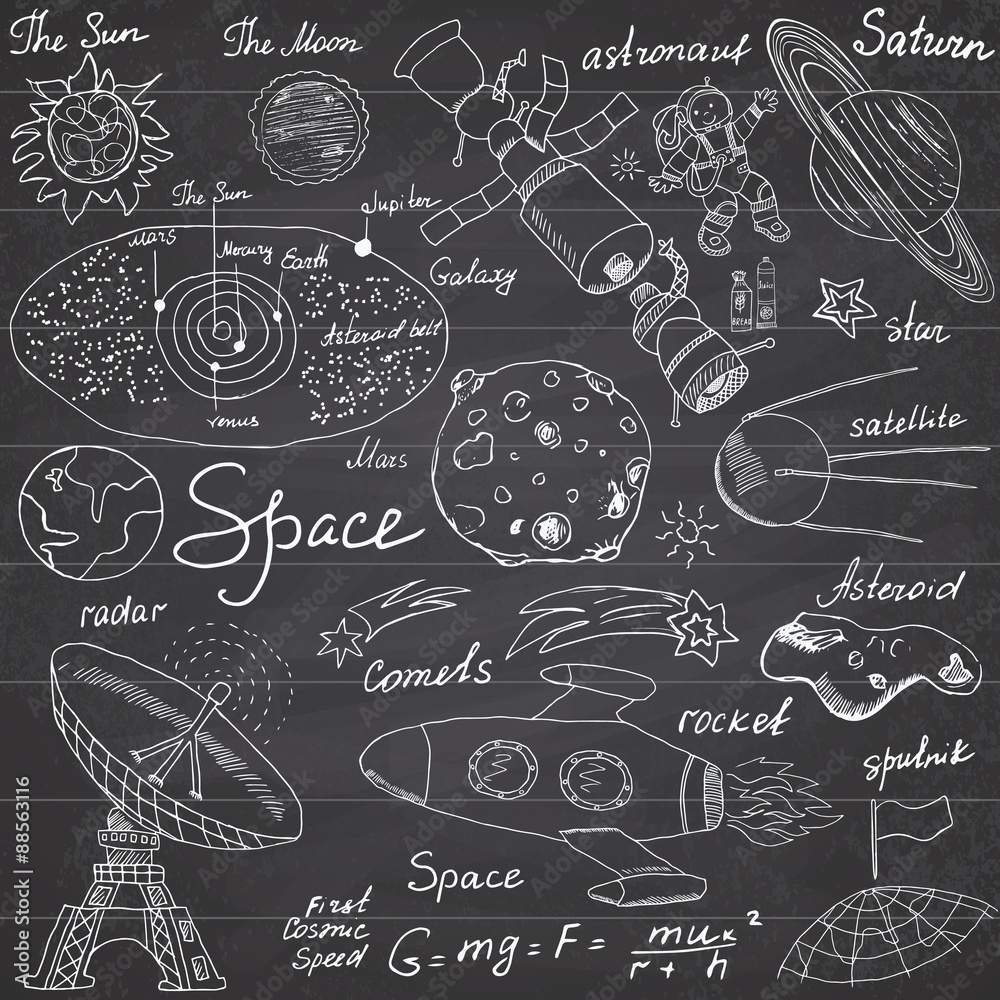 The Sun
The Moon
astronaut
Saturn
The Sun
Jupiter
Mars
Mercury
Earth
Galaxy
Asteroid belt
venus
BREAD
Juice
star
Mars
satellite
Space
radar
Asteroid
Comets
rocket
sputnik
Space
First
Cosmic
Speed
G = mg = F = muk² / r + h
Adobe Stock | #88563116